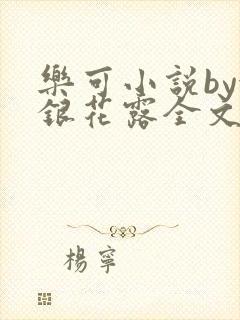 樂可小說by
銀花露全文
楊寧